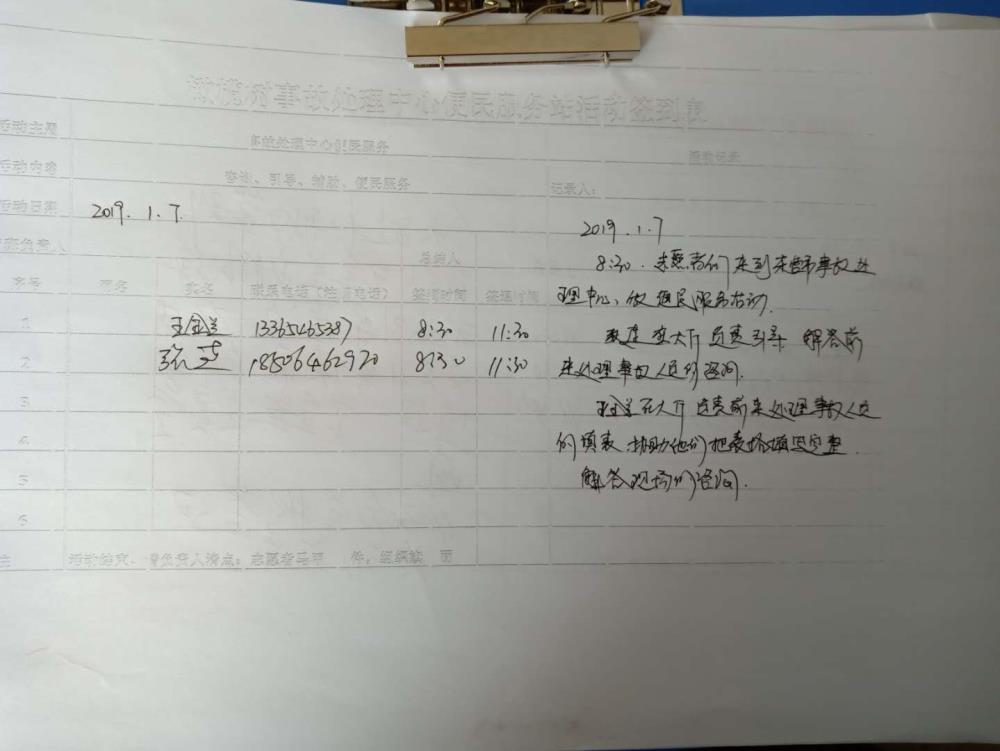 橄榄树事故处理中心便民服务站活动签到表
活动主题 事故处理中心便民服务 活动记录
活动内容 咨询、引导、辅助、便民服务 记录人:
活动日期 2019.1.7.
负责人 总结人
序号 实名 联系电话 签到时间 签退时间
1 13365465387 8:30 11:30
2 张 18506462920 8:30 11:30
3
4
5
6
活动结束,请负责人清点:志愿者马甲 件,组织旗 面
2019.1.7
8:30.志愿者们来到 事故处
理中心,做便民服务活动.
在大厅负责引导 解答前
来处理事故人员的咨询.
在大厅负责前来处理事故人员
的填表.协助他们把表格填写完整.
解答现场的咨询.